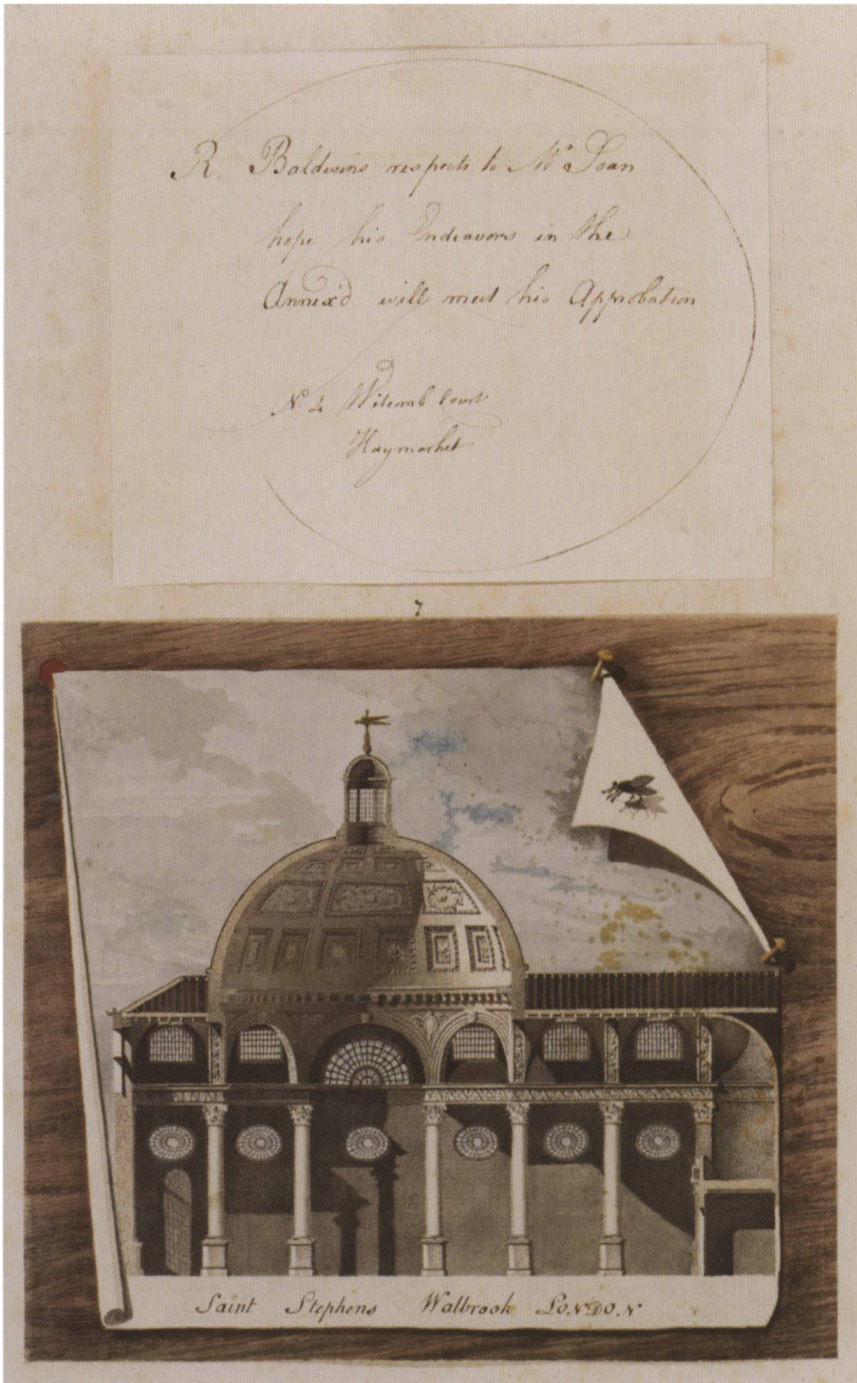 R. Baldwins respects to Mr Soan
hope his Endeavors in the
Annex'd will meet his Approbation
No 4 Witcomb Court
Haymarket
7
Saint Stephens Walbrook LONDON